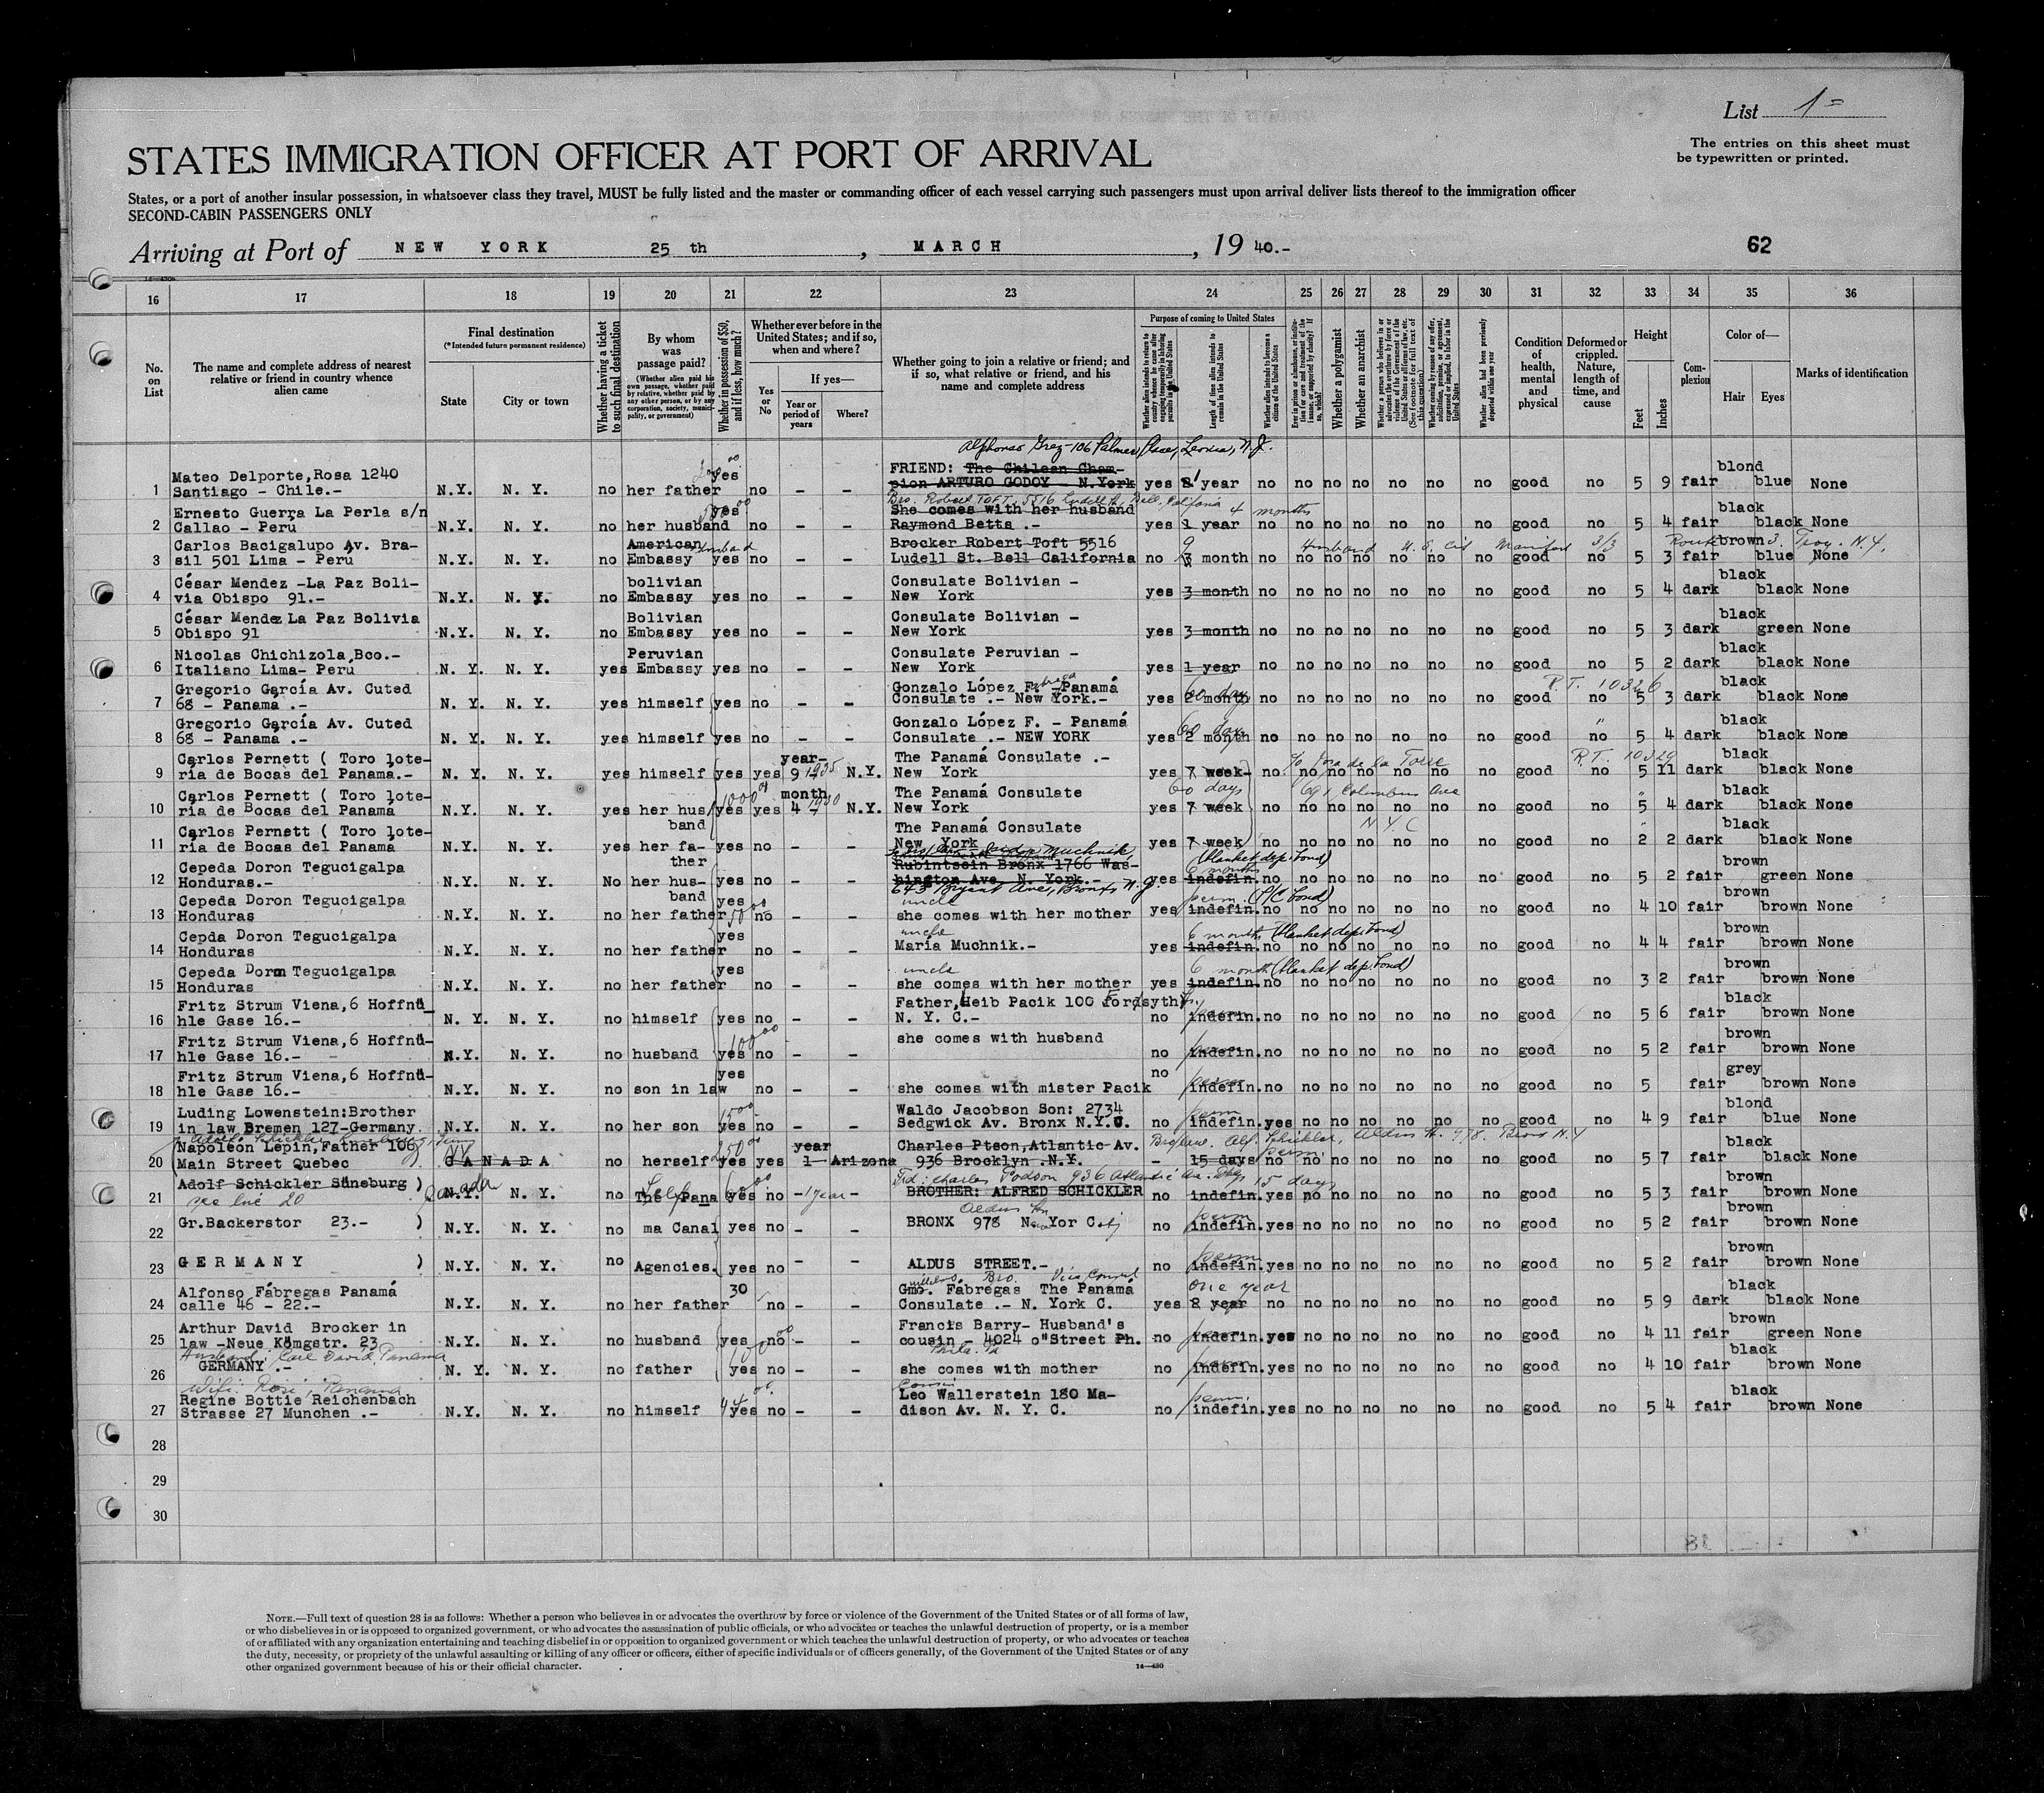 List 1=
The entries on this sheet must
be typewritten or printed.
STATES IMMIGRATION OFFICER AT PORT OF ARRIVAL
States, or a port of another insular possession, in whatsoever class they travel, MUST be fully listed and the master or commanding officer of each vessel carrying such passengers must upon arrival deliver lists thereof to the immigration officer
SECOND-CABIN PASSENGERS ONLY
Arriving at Port of NEW YORK 25 th , MARCH , 19 40.-
62
16 17 18 19 20 21 22 23 24 25 26 27 28 29 30 31 32 33 34 35 36
No. on List
The name and complete address of nearest relative or friend in country whence alien came
Final destination
(*Intended future permanent residence)
State City or town
Whether having a ticket to such final destination
By whom was passage paid?
Whether in possession of $50, and if less, how much?
Whether ever before in the United States; and if so, when and where?
Yes or No
If yes—
Year or period of years
Where?
Whether going to join a relative or friend; and if so, what relative or friend, and his name and complete address
Purpose of coming to United States
Length of time alien intends to remain in the United States
Whether a polygamist
Whether an anarchist
Condition of health, mental and physical
Deformed or crippled. Nature, length of time, and cause
Height
Feet Inches
Complexion
Color of—
Hair Eyes
Marks of identification
Alphonso Grez-106 Palmer Place, Leonia, N.J.
1 Mateo Delporte,Rosa 1240 Santiago - Chile.- N.Y. N. Y. no her father yes no - - FRIEND: The Chilean Cham-pion ARTURO GODOY - N.York yes year no no no no no no no good no 5 9 fair blond blue None
Bro. Robert TOFT, 5516 Ludell St, Bell, California 4 months
2 Ernesto Guerra La Perla s/n Callao - Peru N.Y. N. Y. no her husband yes no - - She comes with her husband Raymond Betta .- yes 1 year no no no no no no no good no 5 4 fair black black None
3 Carlos Bacigalupo Av. Bra-sil 501 Lima - Perú N.Y. N. Y. no American Embassy husband yes no - - Brocker Robert Toft 5516 Ludell St. Bell California no 9 month no no no no no no no good no 5 3 fair brown blue None
Husband U.S. Cit Manifest 3/3 Route 3. Troy. N.Y.
4 César Mendez -La Paz Boli-via Obispo 91.- N.Y. N. Y. no bolivian Embassy yes no - - Consulate Bolivian - New York yes 3 month no no no no no no no good no 5 4 dark black black None
5 César Mendez La Paz Bolivia Obispo 91 N.Y. N. Y. no Bolivian Embassy yes no - - Consulate Bolivian - New York yes 3 month no no no no no no no good no 5 3 dark black green None
6 Nicolas Chichizola,Bco.- Italiano Lima- Perú N. Y. N. Y. yes Peruvian Embassy yes no - - Consulate Peruvian - New York yes 1 year no no no no no no no good no 5 2 dark black black None
7 Gregorio García Av. Cuted 68 - Panamá .- N. Y. N. Y. yes himself yes no - - Gonzalo López F. -Panamá Consulate .- New York.- yes 2 month 60 days no no no no no no no good no 5 3 dark black black None
R.T. 10326
8 Gregorio García Av. Cuted 68 - Panamá .- N. Y. N. Y. yes himself yes no - - Gonzalo López F. - Panamá Consulate .- NEW YORK yes 2 month 60 days no no no no no no no good no 5 4 dark black black None
9 Carlos Pernett ( Toro lote-ria de Bocas del Panama.- N. Y. N. Y. yes himself yes yes year- 9 1935 N.Y. The Panamá Consulate .- New York yes 7 week- no no no no no no no good no 5 11 dark black black None
R.T. 10329
10 Carlos Pernett ( Toro lote-ria de Bocas del Panamá N.Y. N. Y. yes her hus/band yes 1000 yes month 4- 1930 N.Y. The Panamá Consulate New York yes 7 week 60 days no no no no no no no good no 5 4 dark black black None
691 Columbus Ave
N Y C
11 Carlos Pernett ( Toro lote-ria de Bocas del Panamá N.Y. N. Y. yes her fa-ther yes no - - The Panamá Consulate New York yes 7 week no no no no no no no good no 2 2 dark black black None
12 Cepeda Doron Tegucigalpa Honduras.- N.Y. N. Y. No her hus-band yes no - - Muchnik Rubintsein Bronx 1766 Was-hington Ave. N. York.- yes indefin. 6 months (blanket dep. bond) no no no no no no no good no 5 2 fair brown green None
643 Bryant Ave, Bronx N.Y.
13 Cepeda Doron Tegucigalpa Honduras N.Y. N. Y. no her father yes no - - uncle she comes with her mother yes indefin. perm. no no no no no no no good no 4 10 fair brown brown None
14 Cepda Doron Tegucigalpa Honduras N.Y. N. Y. no her father yes no - - uncle María Muchnik.- yes indefin. 6 months (blanket dep. bond) no no no no no no no good no 4 4 fair brown brown None
15 Cepeda Dorm Tegucigalpa Honduras N.Y. N. Y. no her father yes no - - uncle she comes with her mother yes indefin. 6 month (blanket dep. bond) no no no no no no no good no 3 2 fair brown brown None
16 Fritz Strum Viena,6 Hoffnü-hle Gase 16.- N. Y. N. Y. no himself yes no - - Father,Heib Pacik 100 Fordsyth N. Y. C.- no indefin. no no no no no no no good no 5 6 fair black brown None
17 Fritz Strum Viena,6 Hoffnü-hle Gase 16.- N.Y. N. Y. no husband yes no - - she comes with husband no indefin. no no no no no no no good no 5 2 fair brown brown None
18 Fritz Strum Viena,6 Hoffnü-hle Gase 16.- N.Y. N. Y. no son in law yes no - - she comes with mister Pacik no indefin. perm no no no no no no no good no 5 fair grey brown None
19 Luding Lowenstein:Brother in law Bremen 127-Germany. N.Y. N. Y. no her son yes no - - Waldo Jacobson Son: 2734 Sedgwick Av. Bronx N.Y.C. no indefin. perm yes no no no no no no good no 4 9 fair blond blue None
20 Napoleón Lepin,Father 106 Main Street Quebec CANADA no herself yes 250 yes year 1 Arizona Charles Ptson,Atlantic Av. 936 Brooklyn .N.Y. - 15 days perm. no no no no no no no good no 5 7 fair black black None
21 Adolf Schickler Süneburg ) see line 20 N.Y. Canada N. Y. no The Pana Self yes no -1 year- BROTHER: ALFRED SCHICKLER no indefin. 15 days yes no no no no no no good no 5 3 fair brown brown None
22 Gr.Backerstor 23.- ) N.Y. N. Y. no ma Canal yes no - - BRONX 978 New Yor City no indefin. perm yes no no no no no no good no 5 2 fair brown brown None
23 GERMANY ) N.Y. N. Y. no Agencies. yes no - - ALDUS STREET.- no indefin. perm yes no no no no no no good no 5 2 fair brown brown None
24 Alfonso Fábregas Panamá calle 46 - 22.- N.Y. N. Y. no her father 30 no - - Gmo. Fábregas The Panamá Consulate .- N. York C. Bro. Vice Consul yes 2 year one year no no no no no no no good no 5 9 dark black black None
25 Arthur David Brocker in law -Neue Kömgstr. 23 N.Y. N. Y. no husband yes no - - Francis Barry- Husband's cousin - 4024 o"Street Ph. Phila. Pa no indefin. yes no no no no no no good no 4 11 fair brown green None
26 Husband: Carl David, Panama GERMANY .- N. Y. N. Y. no father yes no - - she comes with mother no indefin. yes no no no no no no good no 4 10 fair black brown None
27 Wife: Rosi, Panama Regine Bottie Reichenbach Strasse 27 Munchen .- N.Y. N. Y. no himself yes no - - cousin Leo Wallerstein 180 Ma-dison Av. N. Y. C. no indefin. perm. yes no no no no no no good no 5 4 fair black brown None
28
29
30
NOTE.—Full text of question 28 is as follows: Whether a person who believes in or advocates the overthrow by force or violence of the Government of the United States or of all forms of law,
or who disbelieves in or is opposed to organized government, or who advocates the assassination of public officials, or who advocates or teaches the unlawful destruction of property, or is a member
of or affiliated with any organization entertaining and teaching disbelief in or opposition to organized government or which teaches the unlawful destruction of property, or who advocates or teaches
the duty, necessity, or propriety of the unlawful assaulting or killing of any officer or officers, either of specific individuals or of officers generally, of the Government of the United States or of any
other organized government because of his or their official character.
14—430